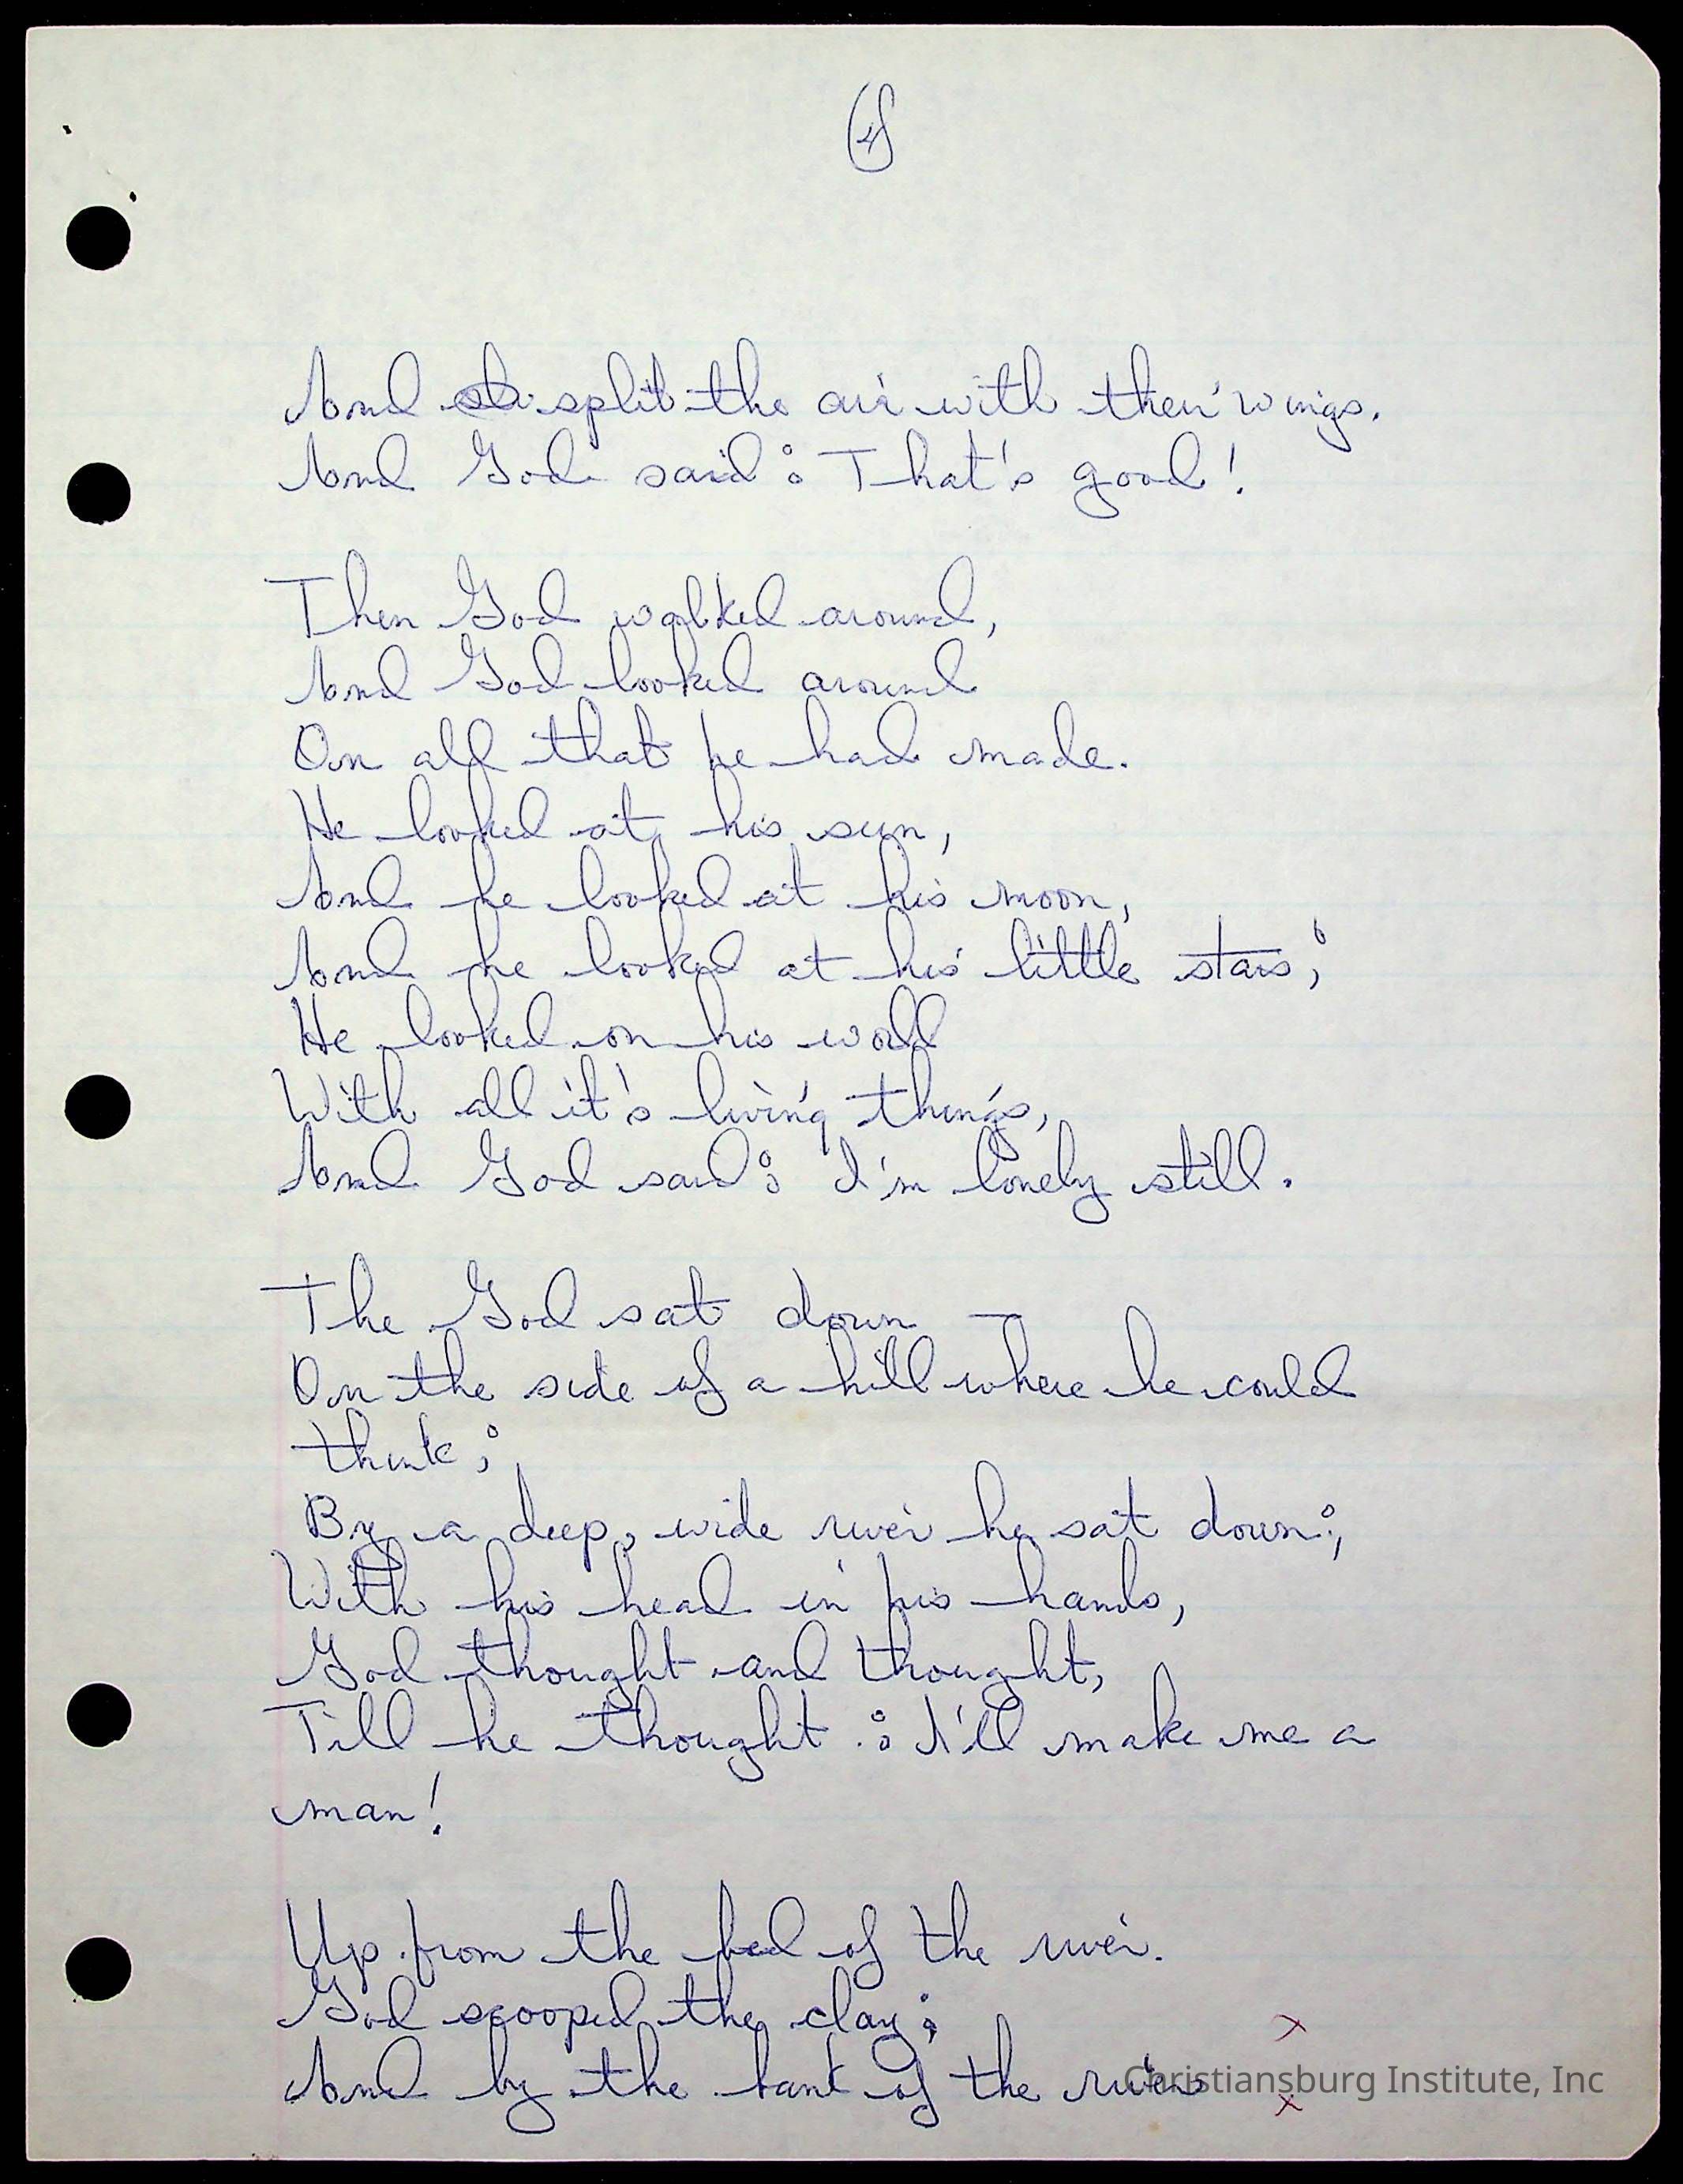 (4)
And split the air with their wings.
And God said: That's good!
Then God walked around,
And God looked around
On all that he had made.
He looked at his sun,
And he looked at his moon,
And he looked at his little stars;
He looked on his world
With all it's living things,
And God said: I'm lonely still.
The God sat down —
On the side of a hill where he could
think;
By a deep, wide river he sat down;
With his head in his hands,
God thought and thought,
Till he thought: I'll make me a
man!
Up from the bed of the river.
God scooped the clay;
And by the bank of the river
x
x
Christiansburg Institute, Inc